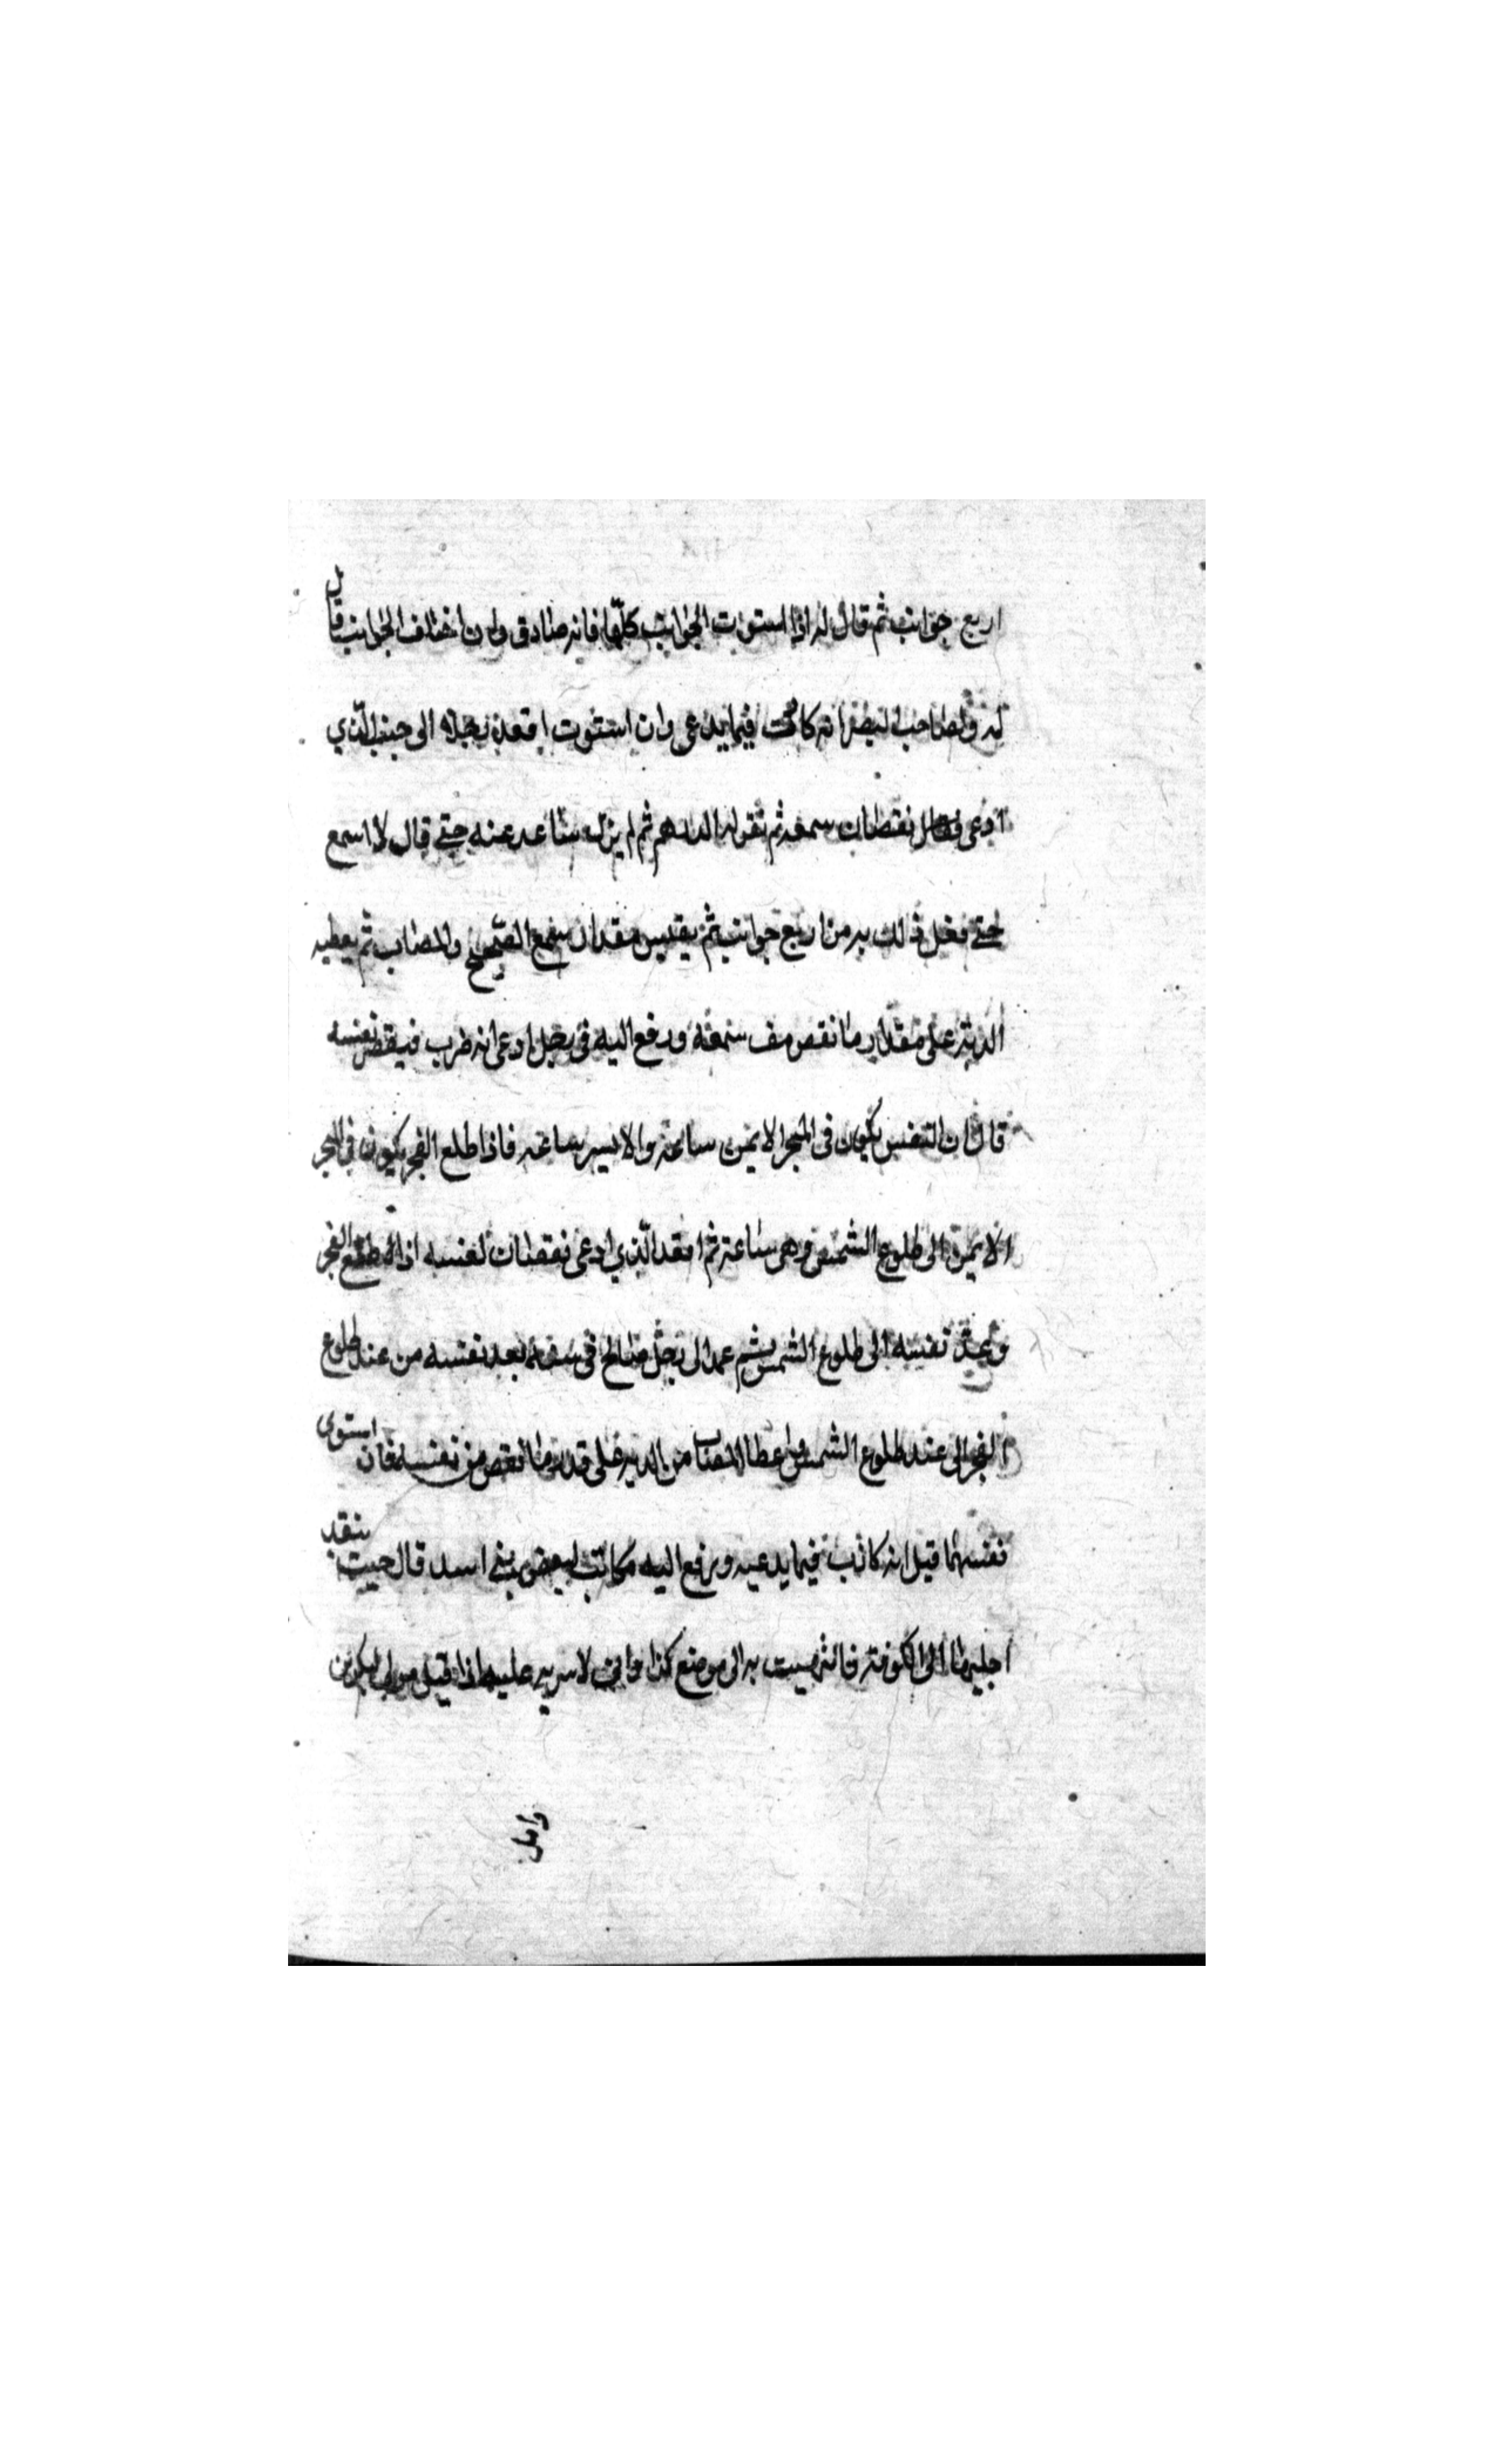 اربع جوانب ثم قال له اذا استوت الجوانب كلها فانه صادق وان اختلف الجوانب قال
له ولصاحب البصر انه كاذب فيما يدعي وان استوت اقعد رجلا الى جنب الذي
ادعى نقصان سمعه ثم نقر له الدراهم ثم لم يزل يتباعد عنه حتى قال لا اسمع
حتى فعل ذلك به من اربع جوانب ثم يقيس مقدار سمع الصحيح والمصاب ثم يعطيه
الدية على مقدار ما نقص من سمعه ورفع اليه في رجل ادعى انه ضرب فنقص نفسه
قال ان النفس يكون في المنخر الايمن ساعة والايسر ساعة فاذا طلع الفجر يكون في المنخر
الايمن الى طلوع الشمس وهي ساعة ثم اقعد الذي ادعى نقصان نفسه اذا طلع الفجر
ويعد نفسه الى طلوع الشمس ثم عمد الى رجل صالح في سنه يعد نفسه من عند طلوع
الفجر الى عند طلوع الشمس واعطا المصاب من الدية على قدر ما نقص من نفسه فان استوى
نفسهما قيل انه كاذب فيما يدعيه ورفع اليه مكاتب لبعض بني اسد قال حيث ينقد
الى الكوفة به الى موضع كذا